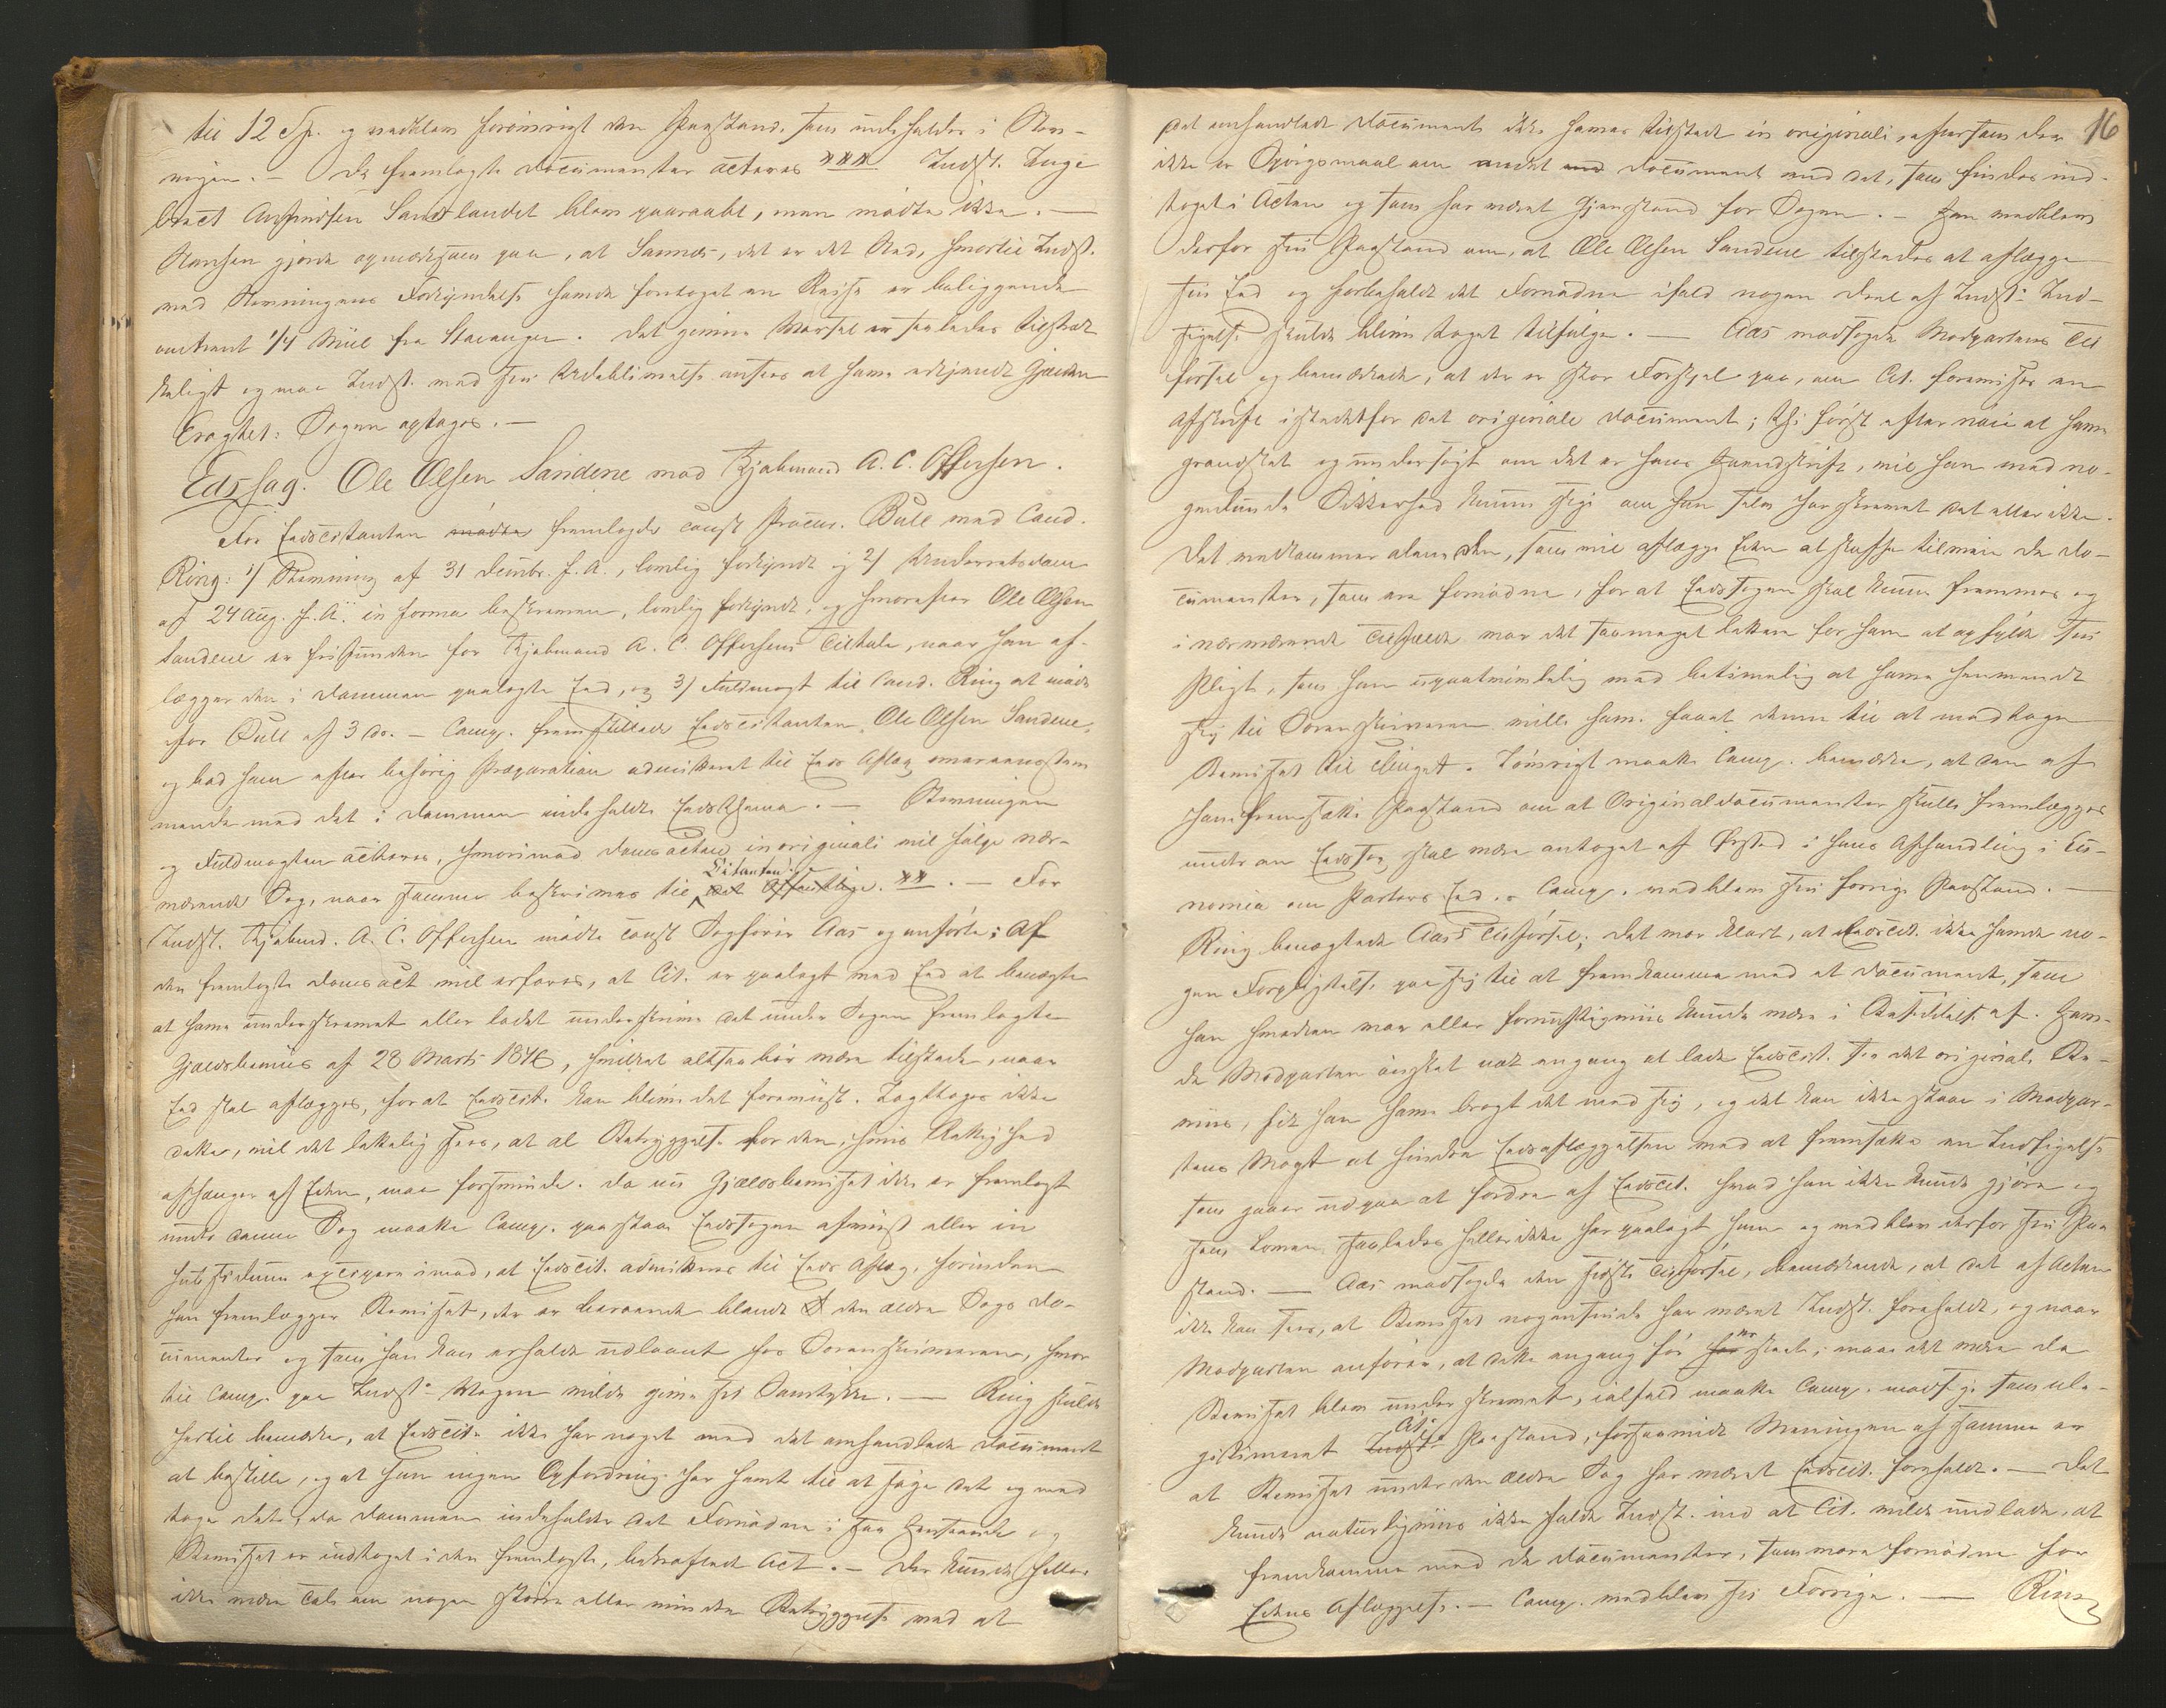 til 12 Sp. og vedblev forøvrigt den Paastand, som indeholdes i Stev-
ningen. – De fremlagte Documenter acteres *** Indst. Inge-
bret Anfindsen Sandlandet blev paaraabt, men mødte ikke. –
Hansen gjorde opmærksom paa, at Sannes, det er det Sted, hvortil Indst.
med Stevningens Forkyndelse havde foretaget en Reise er beliggende
omtrent 1/4 Miil fra Stavanger. Det givne Varsel er saaledes tilstræk-
keligt og maa Indst. med sin Udeblivelse ansees at have erkjendt Gjælden
Eragtet: Sagen optages. –
Edssag. Ole Olsen Sandene mod Kjøbmand A. C. Offersen.
For Edscitanten mødte fremlagde const Procur. Bull med Cand.
Ring: 1/ Stevning af 31 Decmbr. f. A., lovlig forkyndt og 2/ Underretsdom
af 24 Aug. f. A. in forma beskreven, lovlig forkyndt, og hvorefter Ole Olsen
Sandene er frifunden for Kjøbmand A. C. Offersens Tiltale, naar han af-
lægger den i Dommen paalagte Eed, og 3/ Fuldmagt til Cand. Ring at møde
for Bull af 3 ds. – Comp. fremstillede Edscitanten Ole Olsen Sandene,
og bad ham efter behørig Præparation admitteret til Eds Aflæg overeensstem-
mende med det i Dommen indeholdte Edsthema. – Stevningen
og Fuldmagten acteres, hvorimod Domsacten in originali vil følge nær-
værende Sag, naar samme beskrives til Citanten det Offentlige. **. – For
Indst. Kjøbmd. A. C. Offersen mødte const Sagfører Aas og anførte: Af
den fremlagte Domsact vil erfares, at Cit. er paalagt med Eed at benægte
at have underskrevet eller ladet underskrive det under Sagen fremlagte
Gjældsbeviis af 28 Marts 1846, hvilket altsaa bør være tilstede, naar
Eed skal aflægges, for at Edscit. kan blive det foreviist. Iagttages ikke
dette, vil det letteligen sees, at al Betryggelse for den, hvis Rettighed
afhænger af Eden, maa forsvinde. Da nu Gjældsbeviset ikke er fremlagt
under denne Sag maatte Comp. paastaa Edssagen afviist eller in
subsidium excipere imod, at Edscit. admitteres til Eds Aflæg, forinden
han fremlægger Beviset, der er beroende blandt den ældre Sags Do-
cumenter og som han kan erholde udlaant hos Sorenskriveren, hvor-
til Comp. paa Indst.s Vegne vilde give sit Samtykke. – Ring skulde
hertil bemærke, at Edscit. ikke har noget med det omhandlede Document
at bestille, og at han ingen Opfordring har havt til at søge det og med-
tage det, da Dommen indeholder det Fornødne i saa Henseende og
Beviset er indtaget i den fremlagte, bekræftede Act. – Der kunde heller
ikke være Tale om nogen større eller mindre Betryggelse ved at
16
det omhandlede Document ikke haves tilstede in originali, eftersom der
ikke er Spørgsmaal om andet Document end det, som findes ind-
taget i Acten og som har været Gjenstand for Sagen. – Han vedblev
derfor sin Paastand om, at Ole Olsen Sandene tilstedes at aflægge
sin Eed og forbeholdt det Fornødne ifald nogen Deel af Indst.s Ind-
sigelse skulde blive taget tilfølge. – Aas modsagde Modpartens Til-
førsel og bemærkede, at der er stor Forskjel paa, om Cit. forevises en
Afskrift istedetfor det originale Document; thi først efter nøie at have
grandsket og undersøgt om det er hans Haandskrift, vil han med no-
genlunde Sikkerhed kunne sige om han selv har skrevet det eller ikke.
Det vedkommer alene den, som vil aflægge Eden at skaffe tilveie de Do-
cumenter, som ere fornødne, for at Edssagen skal kunne fremmes og
i nærværende Tilfælde var det saameget lettere for ham at opfylde sin
Pligt, som han upaatvivlelig ved betimelig at have henvendt
sig til Sorenskriveren vilde have faaet denne til at medtage
Beviset til Thinget. Iøvrigt maatte Comp. bemærke, at den af
ham fremsatte Paastand om at Originaldocumenter skulle fremlægges
under en Edssag skal være antaget af Ørsted i hans Afhandling i Eu-
nomia om Parters Eed. – Comp. vedblev sin forrige Paastand. –
Ring benægtede Aas's Tilførsel; det var klart, at Edscit. ikke havde no-
gen Forpligtelse paa sig til at fremkomme med et Document, som
han hverken var eller fornuftigviis kunde være i Besiddelse af. Hav-
de Modparten ønsket nok engang at lade Edscit. see det originale Be-
viis, fik han have bragt det med sig, og det kan ikke staae i Modpar-
tens Magt at hindre Edsaflæggelsen med at fremsætte en Indsigelse
som gaaer ud paa at fordre af Edscit. hvad han ikke kunde gjøre og
som Loven saaledes heller ikke har paalagt ham og vedblev derfor sin Paa-
stand. – Aas modsagde den sidste Tilførsel, bemærkende, at det af Acten
ikke kan sees, at Beviset nogensinde har været Indst. foreholdt, og naar
Modparten anfører, at dette engang før har staaet, maa det være da
Beviset blev underskrevet, ialfald maatte Comp. modsige som ule-
gitimeret Cit.s Indst.s Paastand, forsaavidt Meningen af samme er
at Beviset under den ældre Sag har været Edscit. foreholdt. – Det
kunde naturligviis ikke falde Indst. ind at Cit. vilde undlade, at
fremkomme med de Documenter, som vare fornødne for
Edens Aflæggelse. – Comp. vedblev sit Forrige. – Ring